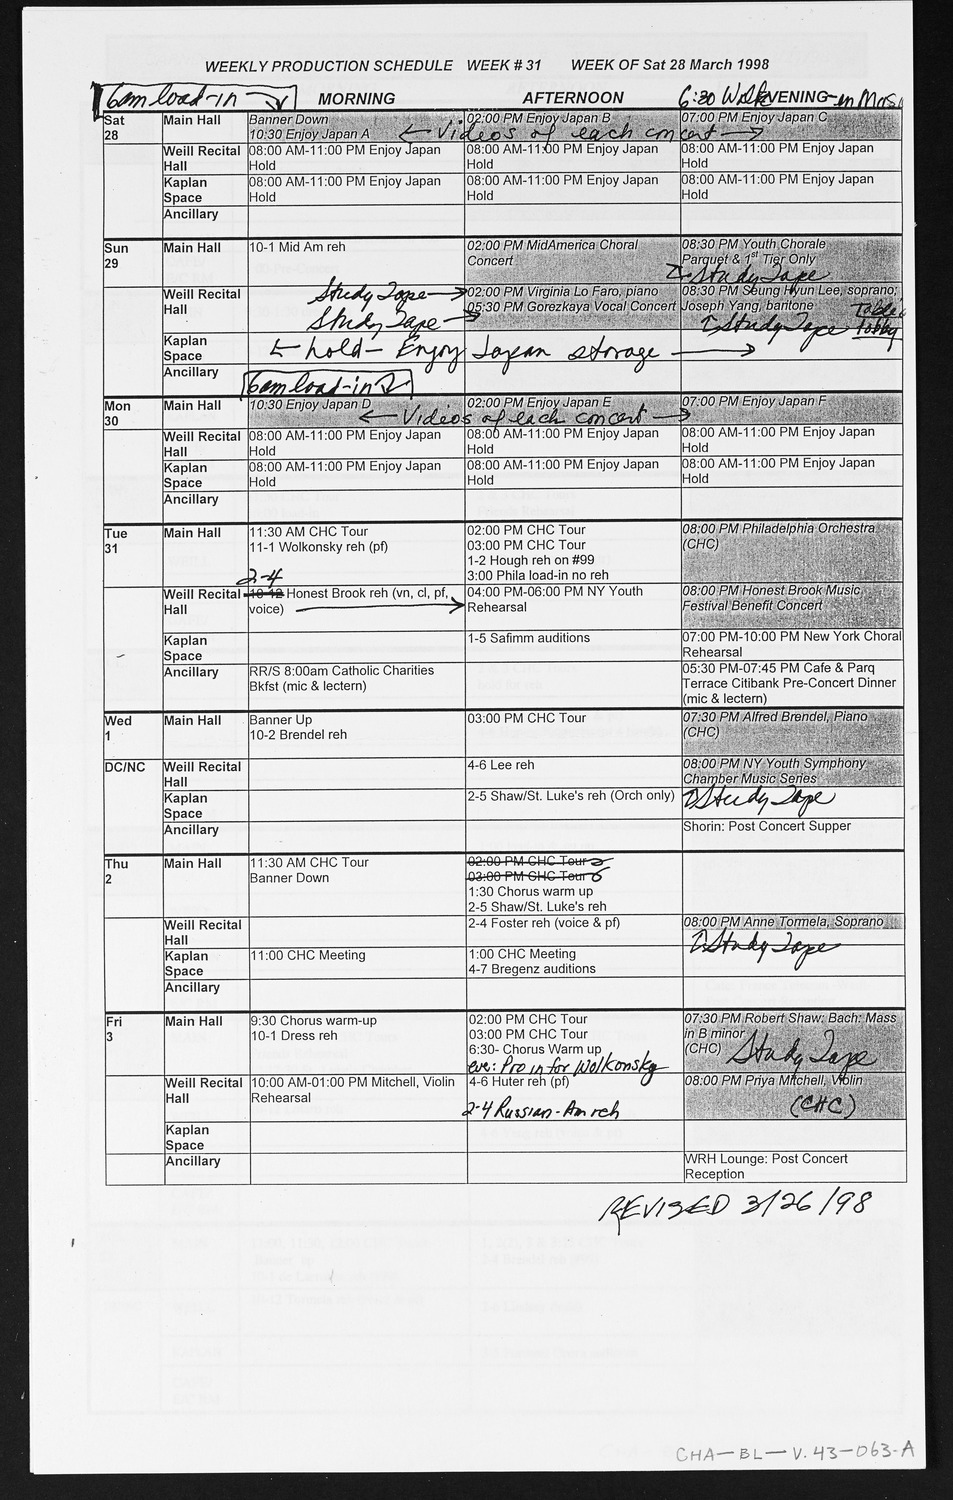 WEEKLY PRODUCTION SCHEDULE WEEK # 31 WEEK OF Sat 28 March 1998
6am load-in MORNING AFTERNOON 6:30 Walk EVENING in
Sat 28
Main Hall
Banner Down
10:30 Enjoy Japan A
02:00 PM Enjoy Japan B
07:00 PM Enjoy Japan C
← Videos of each concert →
Weill Recital Hall
08:00 AM-11:00 PM Enjoy Japan
Hold
08:00 AM-11:00 PM Enjoy Japan
Hold
08:00 AM-11:00 PM Enjoy Japan
Hold
Kaplan Space
08:00 AM-11:00 PM Enjoy Japan
Hold
08:00 AM-11:00 PM Enjoy Japan
Hold
08:00 AM-11:00 PM Enjoy Japan
Hold
Ancillary
Sun 29
Main Hall
10-1 Mid Am reh
02:00 PM MidAmerica Choral
Concert
08:30 PM Youth Chorale
Parquet & 1st Tier Only
Study Tape
Weill Recital Hall
Study Tape →
Study Tape →
02:00 PM Virginia Lo Faro, piano
05:30 PM Gorezkaya Vocal Concert
08:30 PM Seung Hyun Lee, soprano;
Joseph Yang, baritone
Study Tape
Table
Lobby
Kaplan Space
← hold - Enjoy Japan storage →
Ancillary
6am load-in
Mon 30
Main Hall
10:30 Enjoy Japan D
02:00 PM Enjoy Japan E
07:00 PM Enjoy Japan F
← Videos of each concert →
Weill Recital Hall
08:00 AM-11:00 PM Enjoy Japan
Hold
08:00 AM-11:00 PM Enjoy Japan
Hold
08:00 AM-11:00 PM Enjoy Japan
Hold
Kaplan Space
08:00 AM-11:00 PM Enjoy Japan
Hold
08:00 AM-11:00 PM Enjoy Japan
Hold
08:00 AM-11:00 PM Enjoy Japan
Hold
Ancillary
Tue 31
Main Hall
11:30 AM CHC Tour
11-1 Wolkonsky reh (pf)
02:00 PM CHC Tour
03:00 PM CHC Tour
1-2 Hough reh on #99
3:00 Phila load-in no reh
08:00 PM Philadelphia Orchestra
(CHC)
Weill Recital Hall
2-4
10-12 Honest Brook reh (vn, cl, pf,
voice)
04:00 PM-06:00 PM NY Youth
Rehearsal
08:00 PM Honest Brook Music
Festival Benefit Concert
Kaplan Space
1-5 Safimm auditions
07:00 PM-10:00 PM New York Choral
Rehearsal
Ancillary
RR/S 8:00am Catholic Charities
Bkfst (mic & lectern)
05:30 PM-07:45 PM Cafe & Parq
Terrace Citibank Pre-Concert Dinner
(mic & lectern)
Wed 1
Main Hall
Banner Up
10-2 Brendel reh
03:00 PM CHC Tour
07:30 PM Alfred Brendel, Piano
(CHC)
DC/NC
Weill Recital Hall
4-6 Lee reh
08:00 PM NY Youth Symphony
Chamber Music Series
Study Tape
Kaplan Space
2-5 Shaw/St. Luke's reh (Orch only)
Ancillary
Shorin: Post Concert Supper
Thu 2
Main Hall
11:30 AM CHC Tour
Banner Down
02:00 PM CHC Tour
03:00 PM CHC Tour
1:30 Chorus warm up
2-5 Shaw/St. Luke's reh
Weill Recital Hall
2-4 Foster reh (voice & pf)
08:00 PM Anne Tormela, Soprano
Study Tape
Kaplan Space
11:00 CHC Meeting
1:00 CHC Meeting
4-7 Bregenz auditions
Ancillary
Fri 3
Main Hall
9:30 Chorus warm-up
10-1 Dress reh
02:00 PM CHC Tour
03:00 PM CHC Tour
6:30- Chorus Warm up
eve: Pro in for Wolkonsky
07:30 PM Robert Shaw; Bach: Mass
in B minor
(CHC)
Study Tape
Weill Recital Hall
10:00 AM-01:00 PM Mitchell, Violin
Rehearsal
4-6 Huter reh (pf)
2-4 Russian-Am reh
08:00 PM Priya Mitchell, Violin
(CHC)
Kaplan Space
Ancillary
WRH Lounge: Post Concert
Reception
REVISED 3/26/98
CHA-BL-V.43-063-A